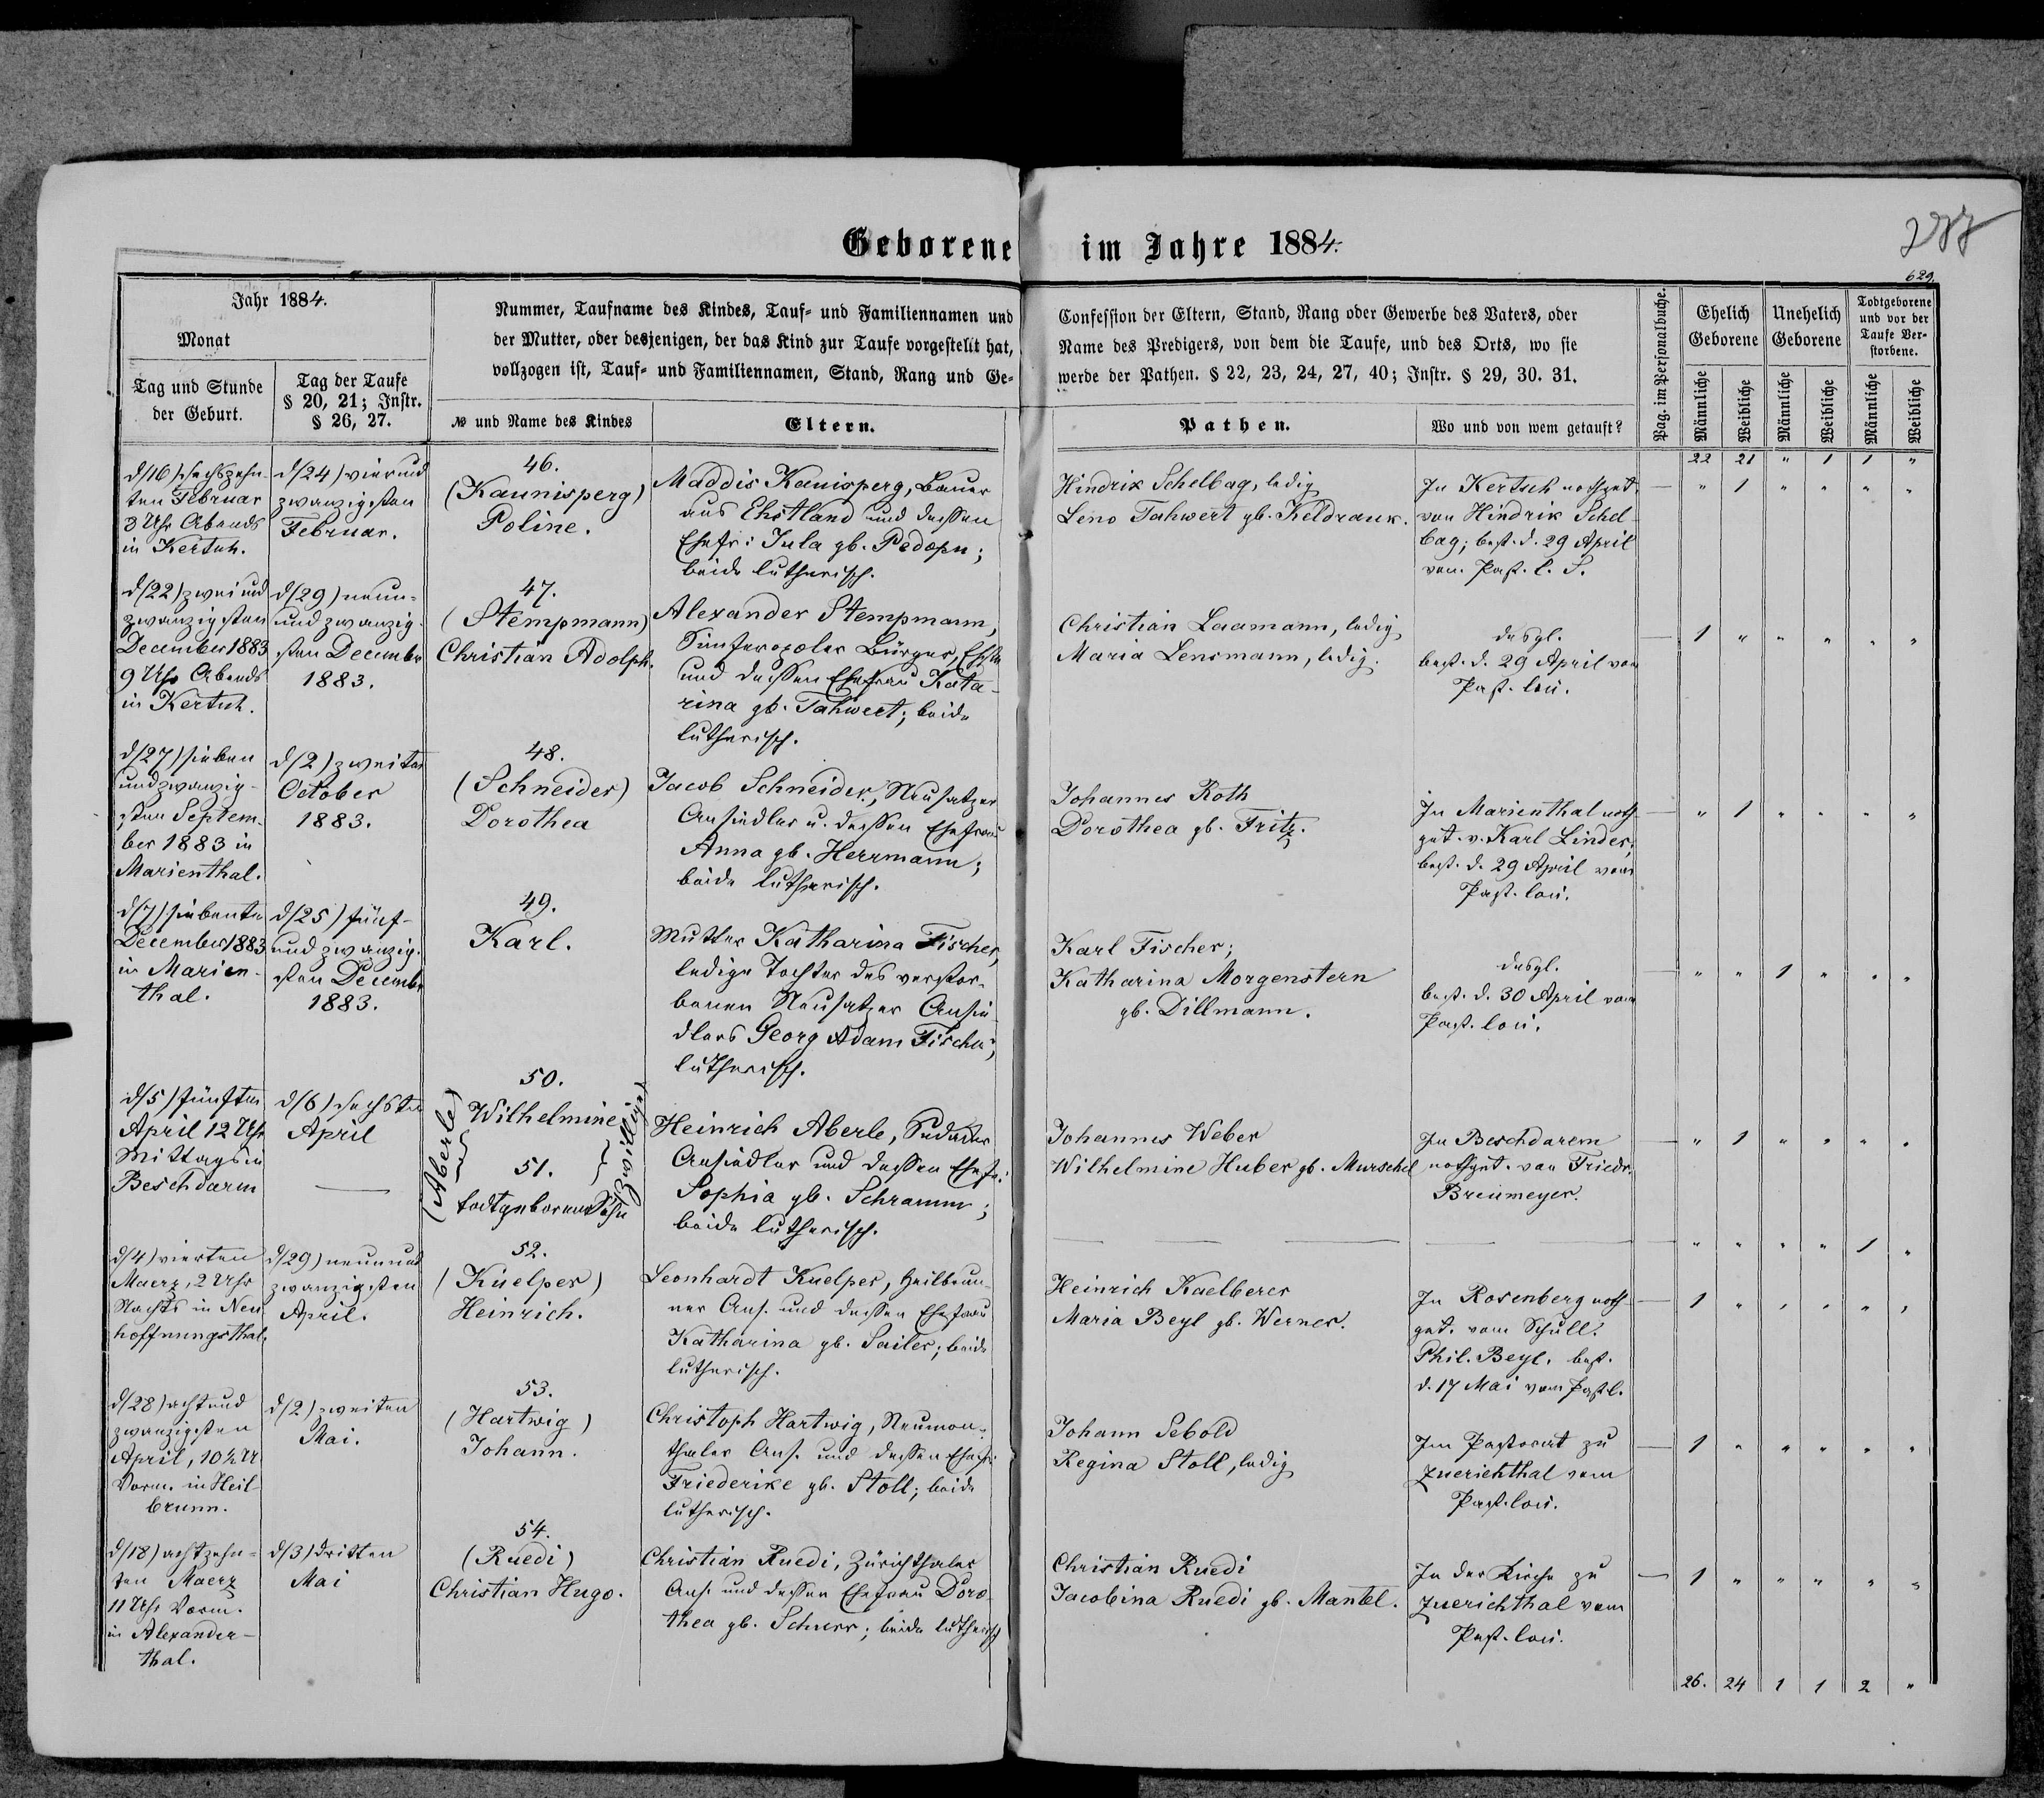 Geborene im Jahre 1884.
288
629.
Jahr 1884.
Monat
Tag und Stunde
der Geburt.
Tag der Taufe
§ 20, 21; Instr.
§ 26, 27.
Nummer, Taufname des Kindes, Tauf- und Familiennamen und
der Mutter, oder desjenigen, der das Kind zur Taufe vorgestellt hat,
vollzogen ist, Tauf- und Familiennamen, Stand, Rang und Ge-
№ und Name des Kindes
Eltern.
Confession der Eltern, Stand, Rang oder Gewerbe des Vaters, oder
Name des Predigers, von dem die Taufe, und des Orts, wo sie
werde der Pathen. § 22, 23, 24, 27, 40; Instr. § 29, 30. 31.
Pathen.
Wo und von wem getauft?
Pag. im Personalbuche.
Ehelich
Geborene
Unehelich
Geborene
Todtgeborene
und vor der
Taufe Ver-
storbene.
Männliche
Weibliche
Männliche
Weibliche
Männliche
Weibliche
22 21 " 1 1 "
d/16) sechszehn-
ten Februar
3 Uhr Abends
in Kertsch.
d/24) vierund
zwanzigsten
Februar.
46.
(Kaunisperg)
Poline.
Maddis Kaunisperg, Bauer
aus Ehstland und dessen
Ehefr: Jula gb.
beide lutherisch.
Hindrix Schelbag, ledig
Leno Tahwert gb. Keldrauk.
In Kertsch nothget.
von Hindrik Schel-
bag; best. d. 29 April
von Past. l. S.
" 1 " " " "
d/22) zwei und
zwanzigsten
December 1883
9 Uhr Abends
in Kertsch.
d/29) neun-
und zwanzig-
sten December
1883.
47.
(Stempmann)
Christian Adolph.
Alexander Stempmann,
Simferopoler Bürger, Ehste
und dessen Ehefrau Kata-
rina gb. Tahwert; beide
lutherisch.
Christian Laamann, ledig
Maria Lensmann, ledig.
desgl.
best. d. 29 April von
Past. loci.
1 " " " " "
d/27) sieben
undzwanzig-
sten Septem-
ber 1883 in
Marienthal.
d/2) zweiten
October
1883.
48.
(Schneider)
Dorothea
Jacob Schneider, Neusatzer
Ansiedler u. dessen Ehefrau
Anna gb. Herrmann;
beide lutherisch.
Johannes Roth
Dorothea gb. Fritz.
In Marienthal noth
get. v. Karl Linder;
best. d. 29 April vom
Past. loci.
" 1 " " " "
d/7) siebenten
December 1883
in Marien-
thal.
d/25) fünf-
und zwanzig-
sten December
1883.
49.
Karl.
Mutter Katharina Fischer,
ledige Tochter des verstor-
benen Neusatzer Ansie-
dlers Georg Adam Fischer;
lutherisch.
Karl Fischer;
Katharina Morgenstern
gb. Dillmann.
desgl.
best. d. 30 April vom
Past. loci.
" " 1 " " "
d/5) fünften
April 12 Uhr
Mittags in
Beschdarm
d/6) sechsten
April
50.
(Aberle)
Wilhelmine
Zwillinge
51.
todtgeborener Sohn
Heinrich Aberle, Sudaker
Ansiedler und dessen Ehefr:
Sophia gb. Schramm;
beide lutherisch.
Johannes Weber
Wilhelmine Huber gb. Murschel
In Beschdarem
nothget. von Friedr.
Breumeyer.
" 1 " " " "
" " " " 1 "
d/4) vierten
Maerz, 2 Uhr
Nachts in Neu
hoffnungsthal.
d/29) neunund
zwanzigsten
April.
52.
(Kuelper)
Heinrich.
Leonhardt Kuelper, Heilbrun-
ner Ans. und dessen Ehefrau
Katharina gb. Sailer; beide
lutherisch.
Heinrich Kaelberer
Maria Beyl gb. Werner.
In Rosenberg noth-
get. vom Schull.
Phil. Beyl. best.
d. 17 Mai vom Past l.
1 " " " " "
d/28) acht und
zwanzigsten
April, 10½ U
Vorm. in Heil-
brunn.
d/2) zweiten
Mai.
53.
(Hartwig)
Johann.
Christoph Hartwig, Neumon-
thaler Ans. und dessen Ehefr:
Friederike gb. Stoll; beide
lutherisch.
Johann Sebold
Regina Stoll, ledig
Im Pastorat zu
Zuerichthal vom
Past. loci.
1 " " " " "
d/18) achtzehn-
ten Maerz
11 Uhr Vorm.
in Alexander-
thal.
d/3) dritten
Mai
54.
(Ruedi)
Christian Hugo.
Christian Ruedi, Zürichthaler
Ans. und dessen Ehefrau Doro-
thea gb. Schnerr; beide lutherisch
Christian Ruedi
Jacobina Ruedi gb. Mantel.
In der Kirche zu
Zuerichthal vom
Past. loci.
1 " " " " "
26. 24 1 1 2 "